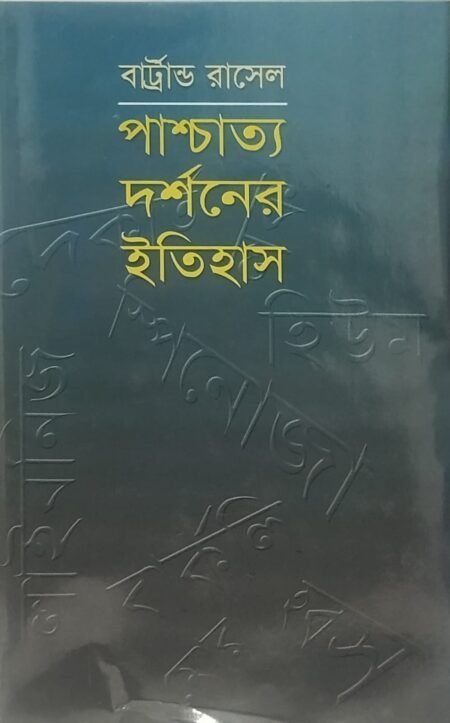 বার্ট্রান্ড রাসেল
পাশ্চাত্য
দর্শনের
ইতিহাস
হিউম
স্পিনোজা
লাইবনিজ
বার্কলি